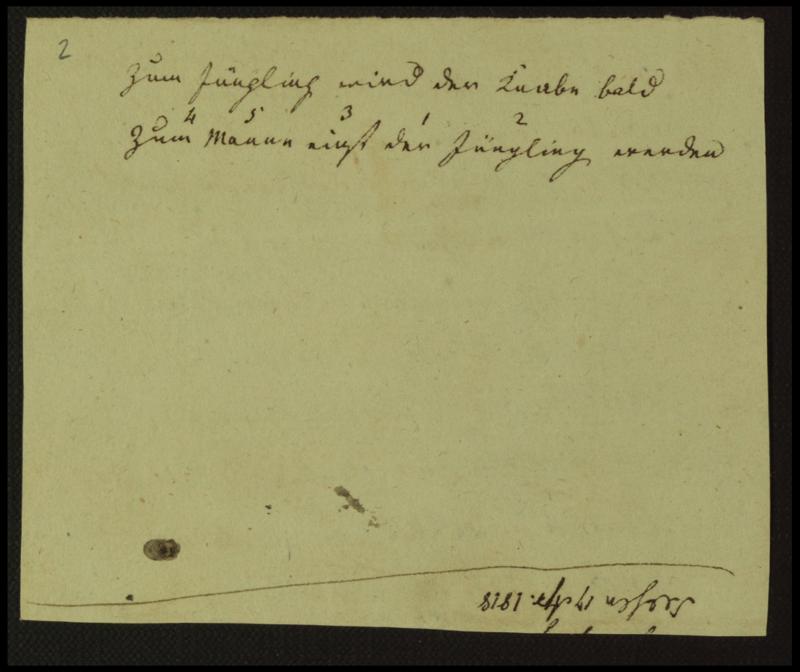 2
Zum Jüngling wird der Knabe bald
4 5 3 1 2
Zum Manne einst der Jüngling werden
1818